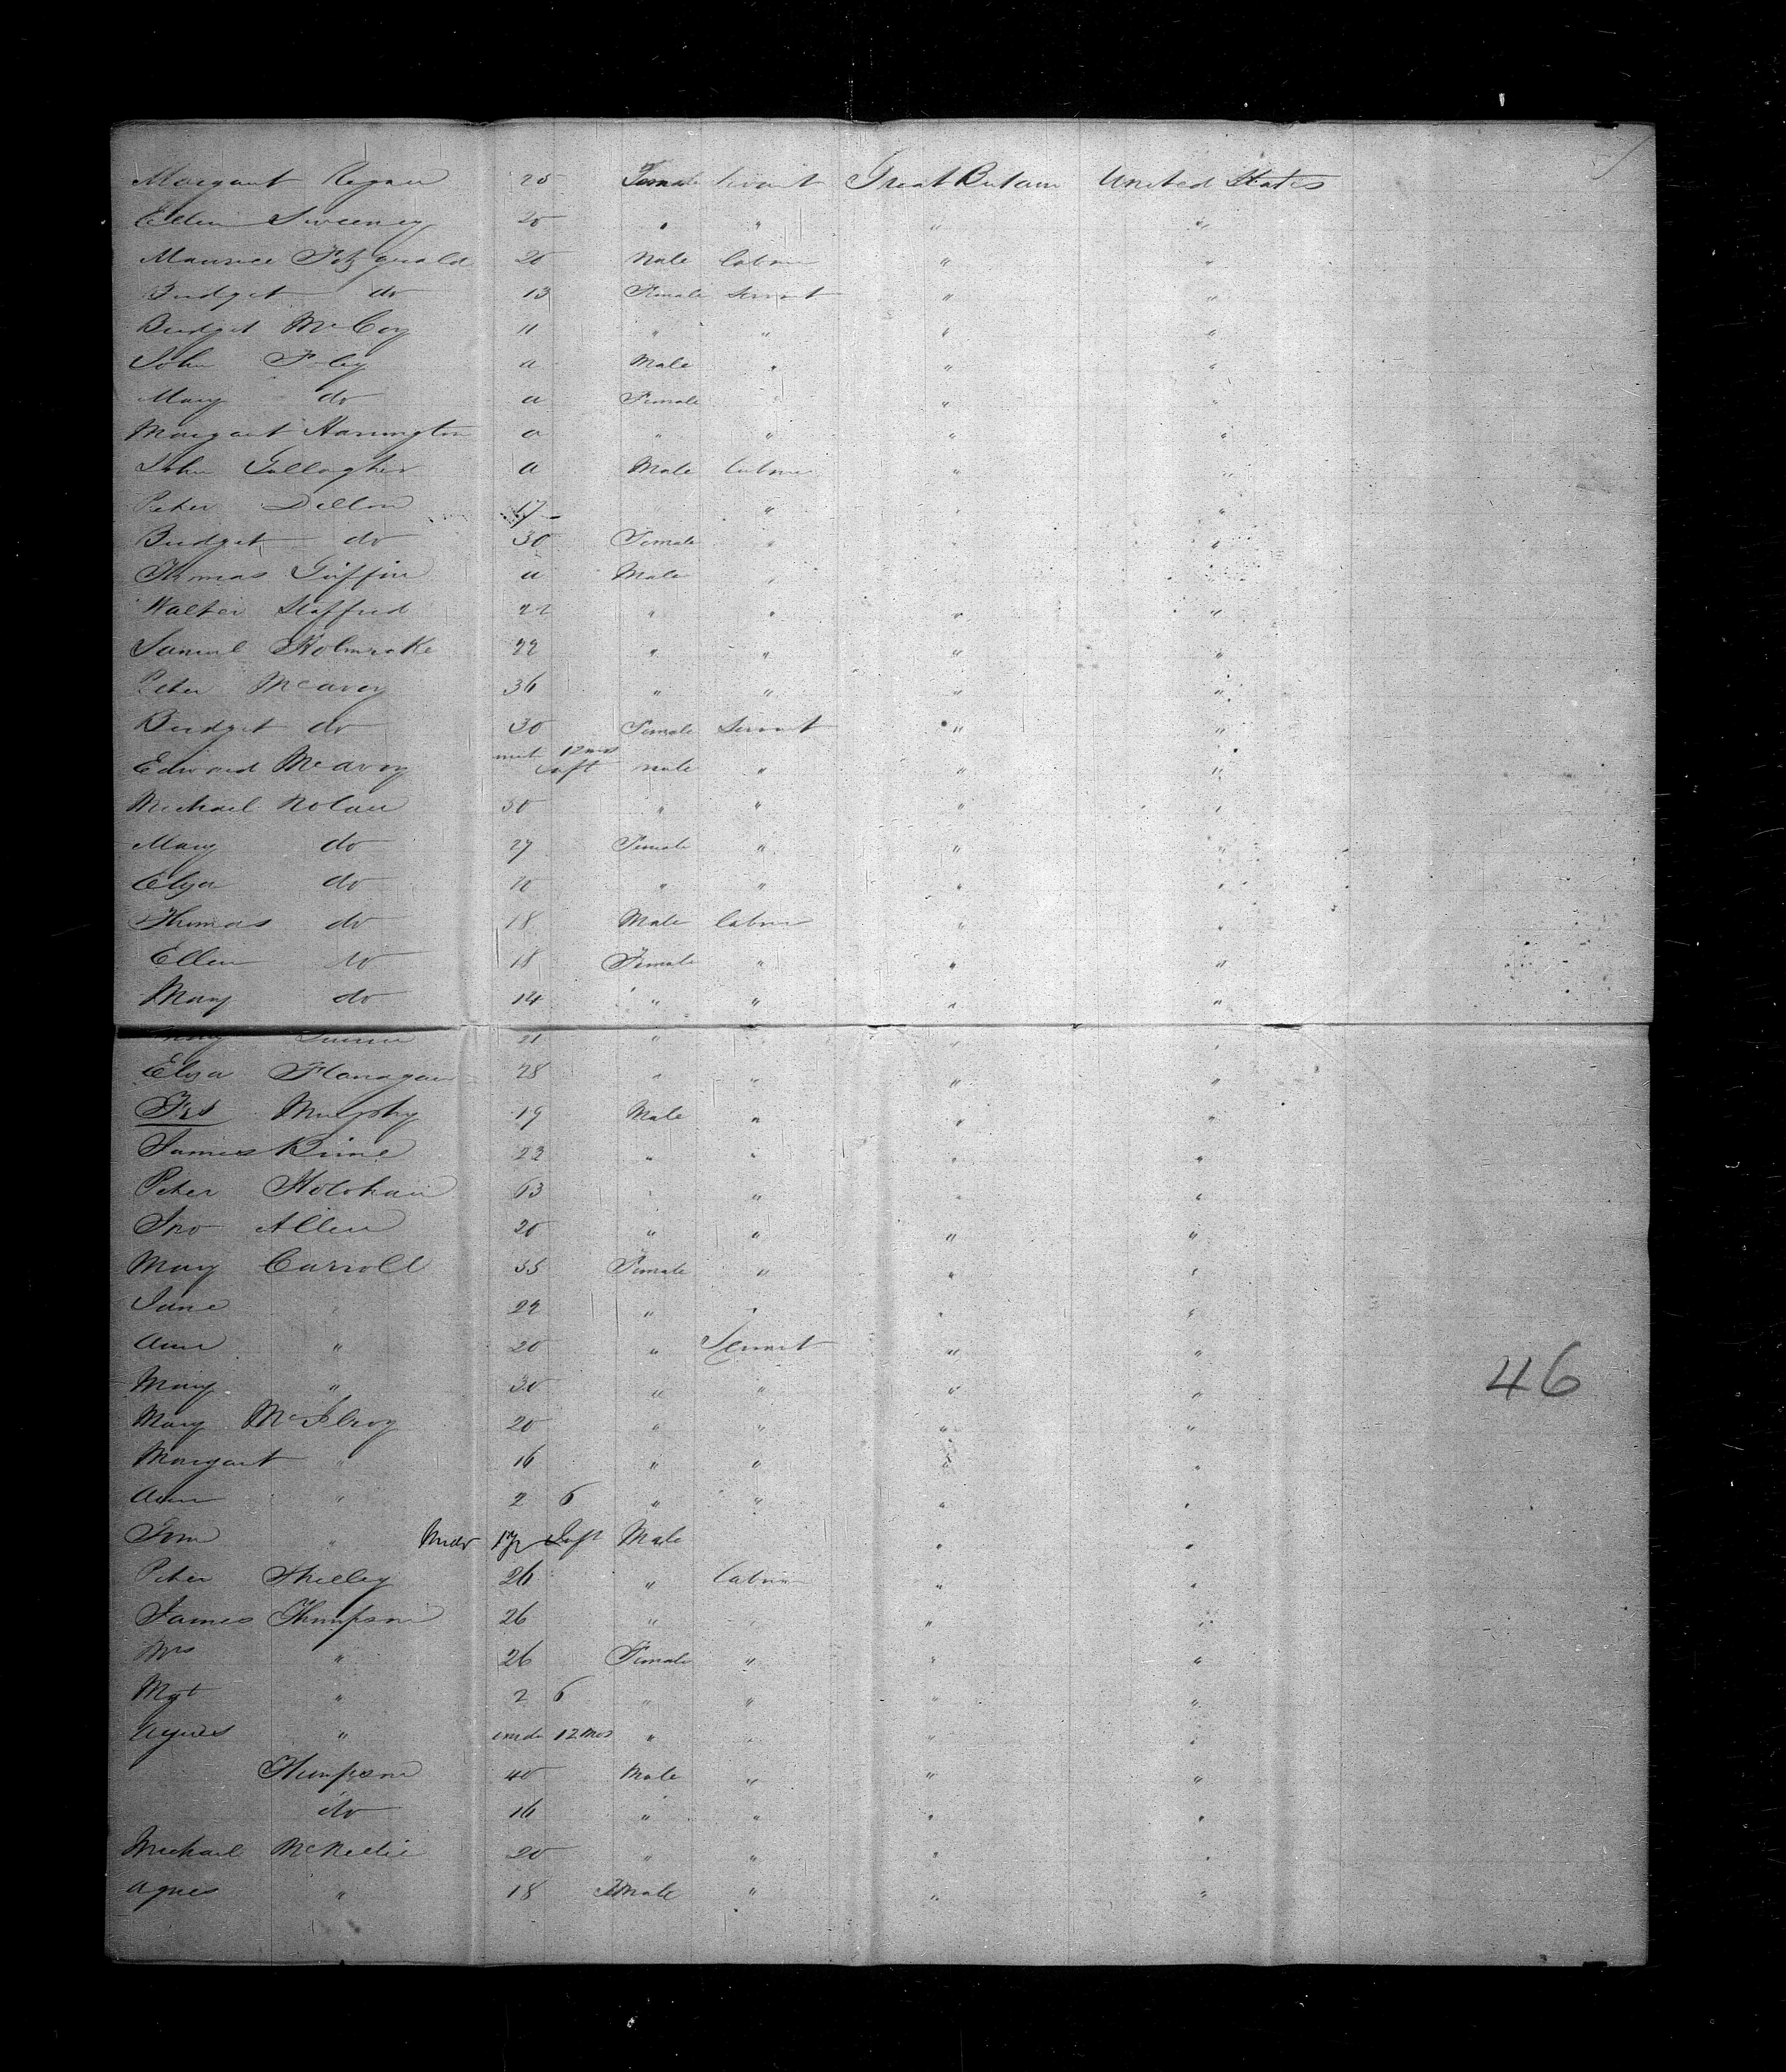 Margaret Regan 25 Female Servant Great Britain United States
Ellen Sweeney 20 " " " "
Maurice Fitzgerald 20 Male Labour " "
Bridget do 13 Female Servant " "
Bridget McCoy 11 " " " "
John Foley a Male " " "
Mary do a Female " " "
Margaret Harrington a " " " "
John Gallagher a Male Labour " "
Peter Dillon 17 " " "
Bridget do 30 Female " "
Thomas Griffin a Male "
Walter Stafford 22 " " " "
Samuel 22 " " " "
Peter McAvoy 36 " " " "
Bridget do 30 Female Servant " "
Edward McAvoy 12 mos Inft male " " "
Michael Nolan 30 " " " "
Mary do 27 Female " " "
Eliza do 20 " " " "
Thomas do 18 Male Labour " "
Ellen do 18 Female " " "
Mary do 14 " " " "
21 " " "
Eliza Flanagan 28 " " " "
Murphy 19 Male " " "
James 23 " " " "
Peter Holohan 63 " " " "
Jno Allen 20 " " " "
Mary Carroll 35 Female " " "
Jane " 22 " " " "
Ann " 20 " Servant " "
Mary " 30 " " " "
46
Mary McIlroy 20 " " " "
Margaret " 16 " " " "
Ann " 2 6 " " " "
Tom " Under 1 yr Inft Male " "
Peter Skelley 26 " Labour " "
James Thompson 26 " " "
Mrs " 26 Female " " "
Mgt " 2 6 " " " "
Agnes " under 12 mos " " " "
Thompson 40 Male " " "
do 16 " " " "
Michael 20 " " " "
Agnes " 18 Female " " "